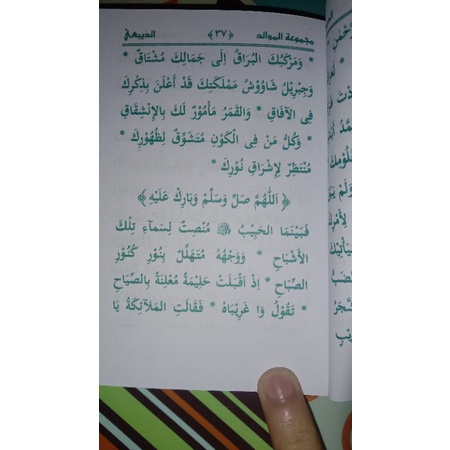 مجموعة الموالد ﴿٣٧﴾ الديبعي
* وَمَرْكَبُكَ البُرَاقُ إِلَى جَمَالِكَ مُشْتَاقٌ *
وَجِبْرِيْلُ شَاوُوْشُ مَمْلَكَتِكَ قَدْ أَعْلَنَ بِذِكْرِكَ
فِى الآفَاقِ * وَالقَمَرُ مَأْمُوْرٌ لَكَ بِالإِنْشِقَاقِ
* وَكُلُّ مَنْ فِى الْكَوْنِ مُتَشَوِّقٌ لِظُهُوْرِكَ *
مُنْتَظِرٌ لِإِشْرَاقِ نُوْرِكَ *
﴿ اَللّٰهُمَّ صَلِّ وَسَلِّمْ وَبَارِكْ عَلَيْهِ ﴾
فَبَيْنَمَا الحَبِيْبُ ﷺ مُنْصِتٌ لِسَمَاءِ تِلْكَ
الأَشْبَاحِ * وَوَجْهُهُ مُتَهَلِّلٌ بِنُوْرِ كَنُوْرِ
الصَّبَاحِ * إِذْ اَقْبَلَتْ حَلِيْمَةُ مُعْلِنَةً بِالصِّيَاحِ
* تَقُوْلُ وَا غَرِيْبَاهُ * فَقَالَتِ المَلَآئِكَةُ يَا